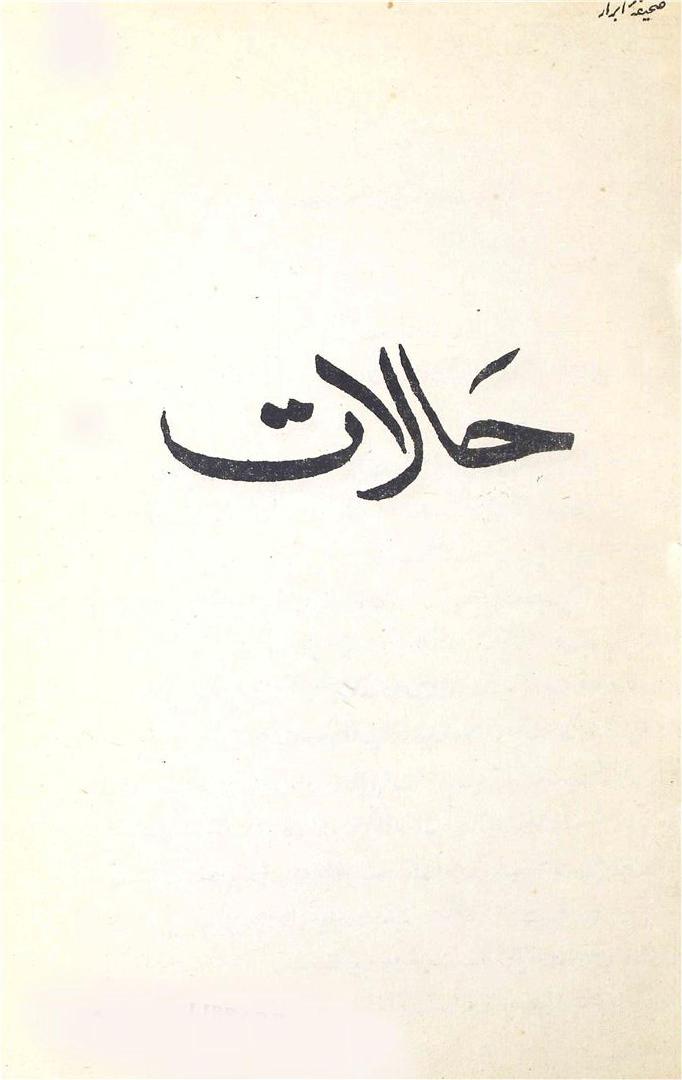 صحیفۂ ابرار
حَالات